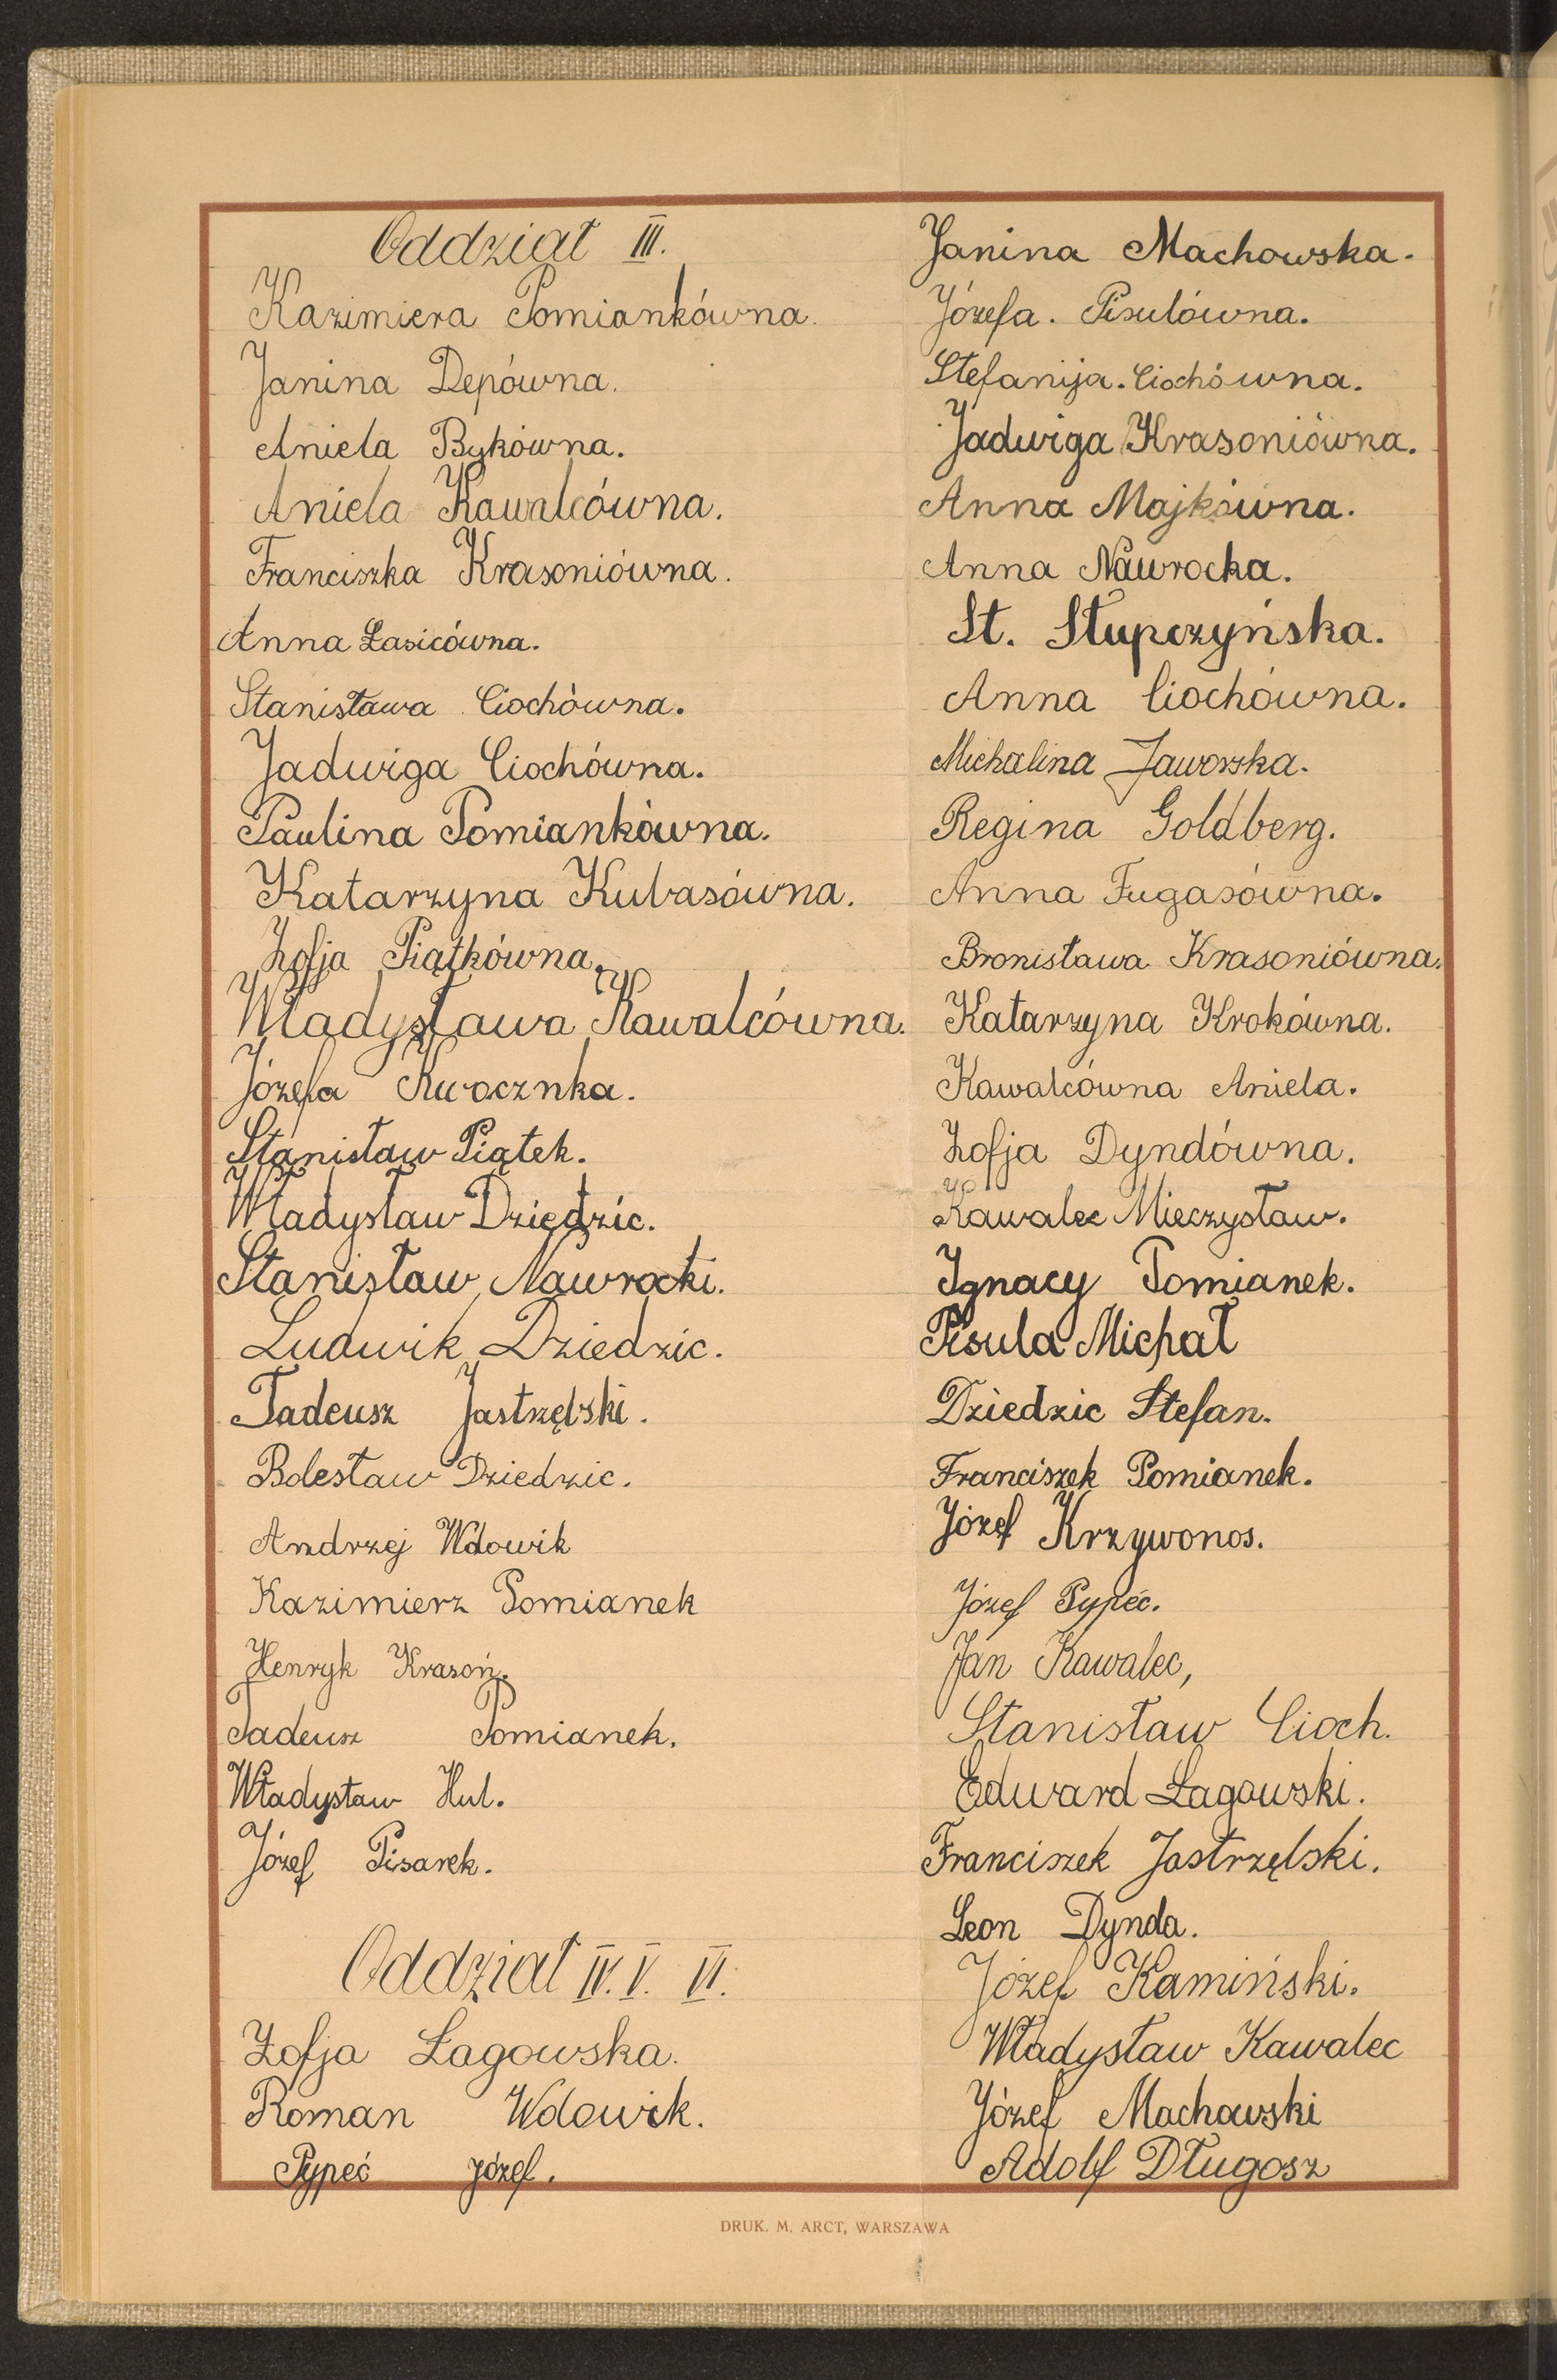 Oddział III.
Kazimiera Pomiankówna.
Janina Depówna.
Aniela Bykówna.
Aniela Kawalcówna.
Franciszka Krasoniówna.
Anna Łasicówna.
Stanisława Ciochówna.
Jadwiga Ciochówna.
Paulina Pomiankówna.
Katarzyna Kubasówna.
Zofja Piątkówna.
Władysława Kawalcówna.
Józefa Kwocznka.
Stanisław Piątek.
Władysław Dziedzic.
Stanisław Nawrocki.
Ludwik Dziedzic.
Tadeusz Jastrzębski.
Bolesław Dziedzic.
Andrzej Wdowik
Kazimierz Pomianek
Henryk Krasoń.
Tadeusz Pomianek.
Władysław Hul.
Józef Pisarek.
Oddział IV. V. VI.
Zofja Łagowska.
Roman Wdowik.
Pypeć Józef.
Janina Machowska.
Józefa. Pisulówna.
Stefanija. Ciochówna.
Jadwiga Krasoniówna.
Anna Majkówna.
Anna Nawrocka.
St. Słupczyńska.
Anna Ciochówna.
Michalina Jaworska.
Regina Goldberg.
Anna Fugasówna.
Bronisława Krasoniówna.
Katarzyna Krokówna.
Kawalcówna Aniela.
Zofja Dyndówna.
Kawalec Mieczysław.
Ignacy Pomianek.
Pisula Michał
Dziedzic Stefan.
Franciszek Pomianek.
Józef Krzywonos.
Józef Pypeć.
Jan Kawalec,
Stanisław Cioch.
Edward Łagowski.
Franciszek Jastrzębski.
Leon Dynda.
Józef Kamiński.
Władysław Kawalec
Józef Machowski
Adolf Długosz
DRUK. M. ARCT, WARSZAWA